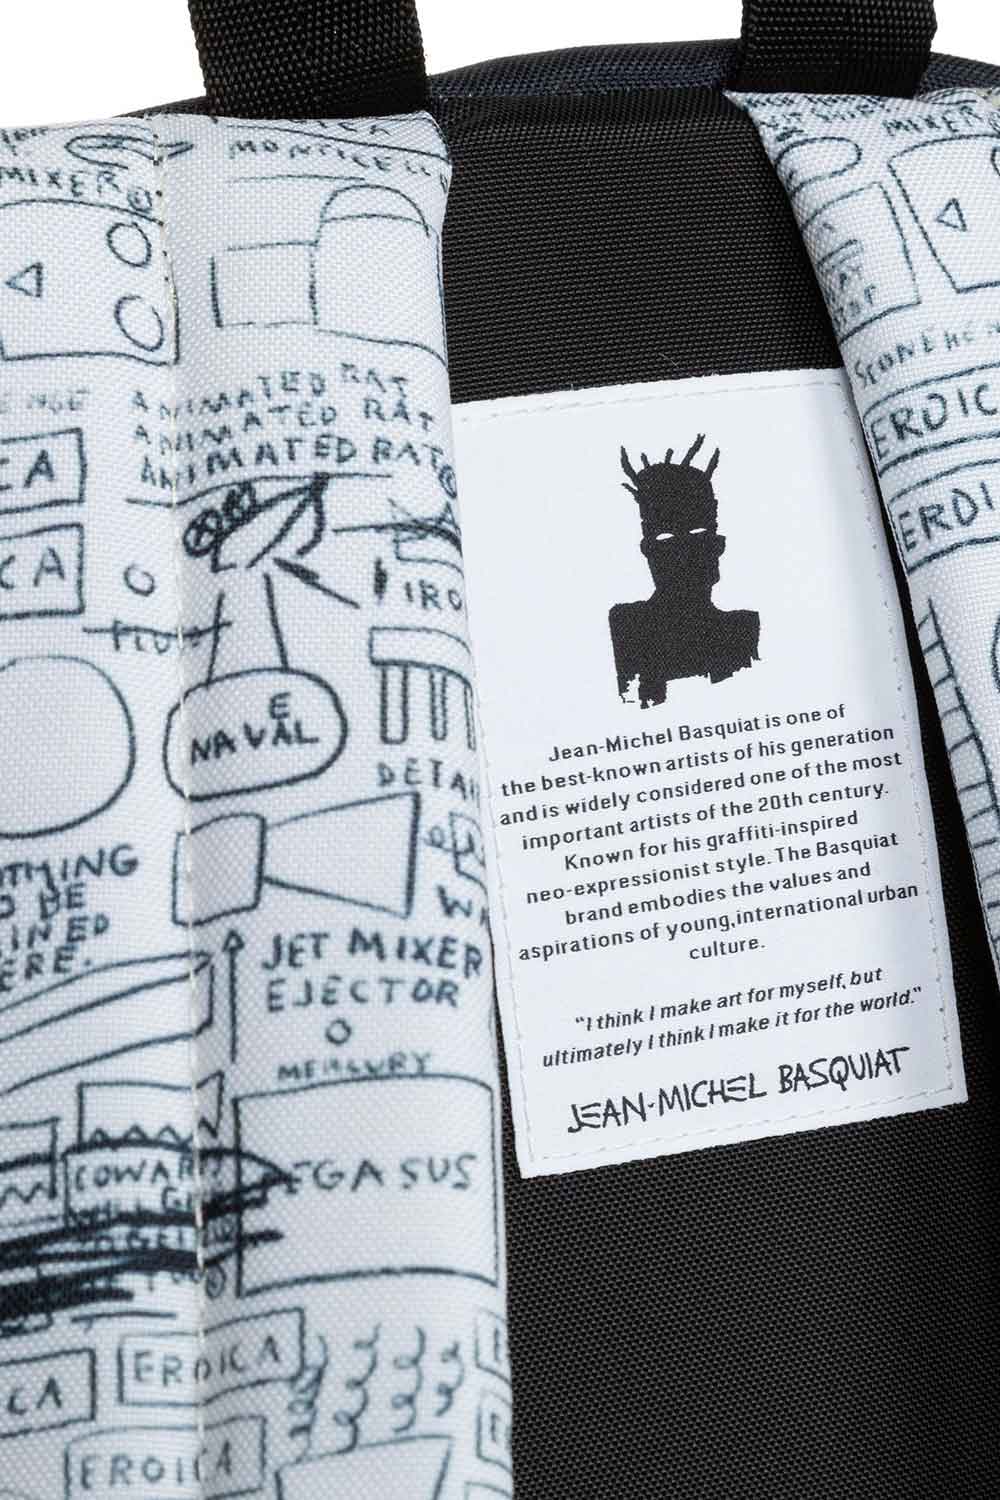 MIXER
MONTICELL
ANIMATED RAT
ANIMATED RAT
ANIMATED RAT
CA
CA
IRO
NAVAL
E
DETAI
JET MIXER
EJECTOR
MERCURY
EGASUS
COWAR
EROICA
CA
EROICA
MIXER
STONEHE
EROIC
EROI
Jean-Michel Basquiat is one of
the best-known artists of his generation
and is widely considered one of the most
important artists of the 20th century.
Known for his graffiti-inspired
neo-expressionist style. The Basquiat
brand embodies the values and
aspirations of young,international urban
culture.
"I think I make art for myself, but
ultimately I think I make it for the world."
JEAN-MICHEL BASQUIAT